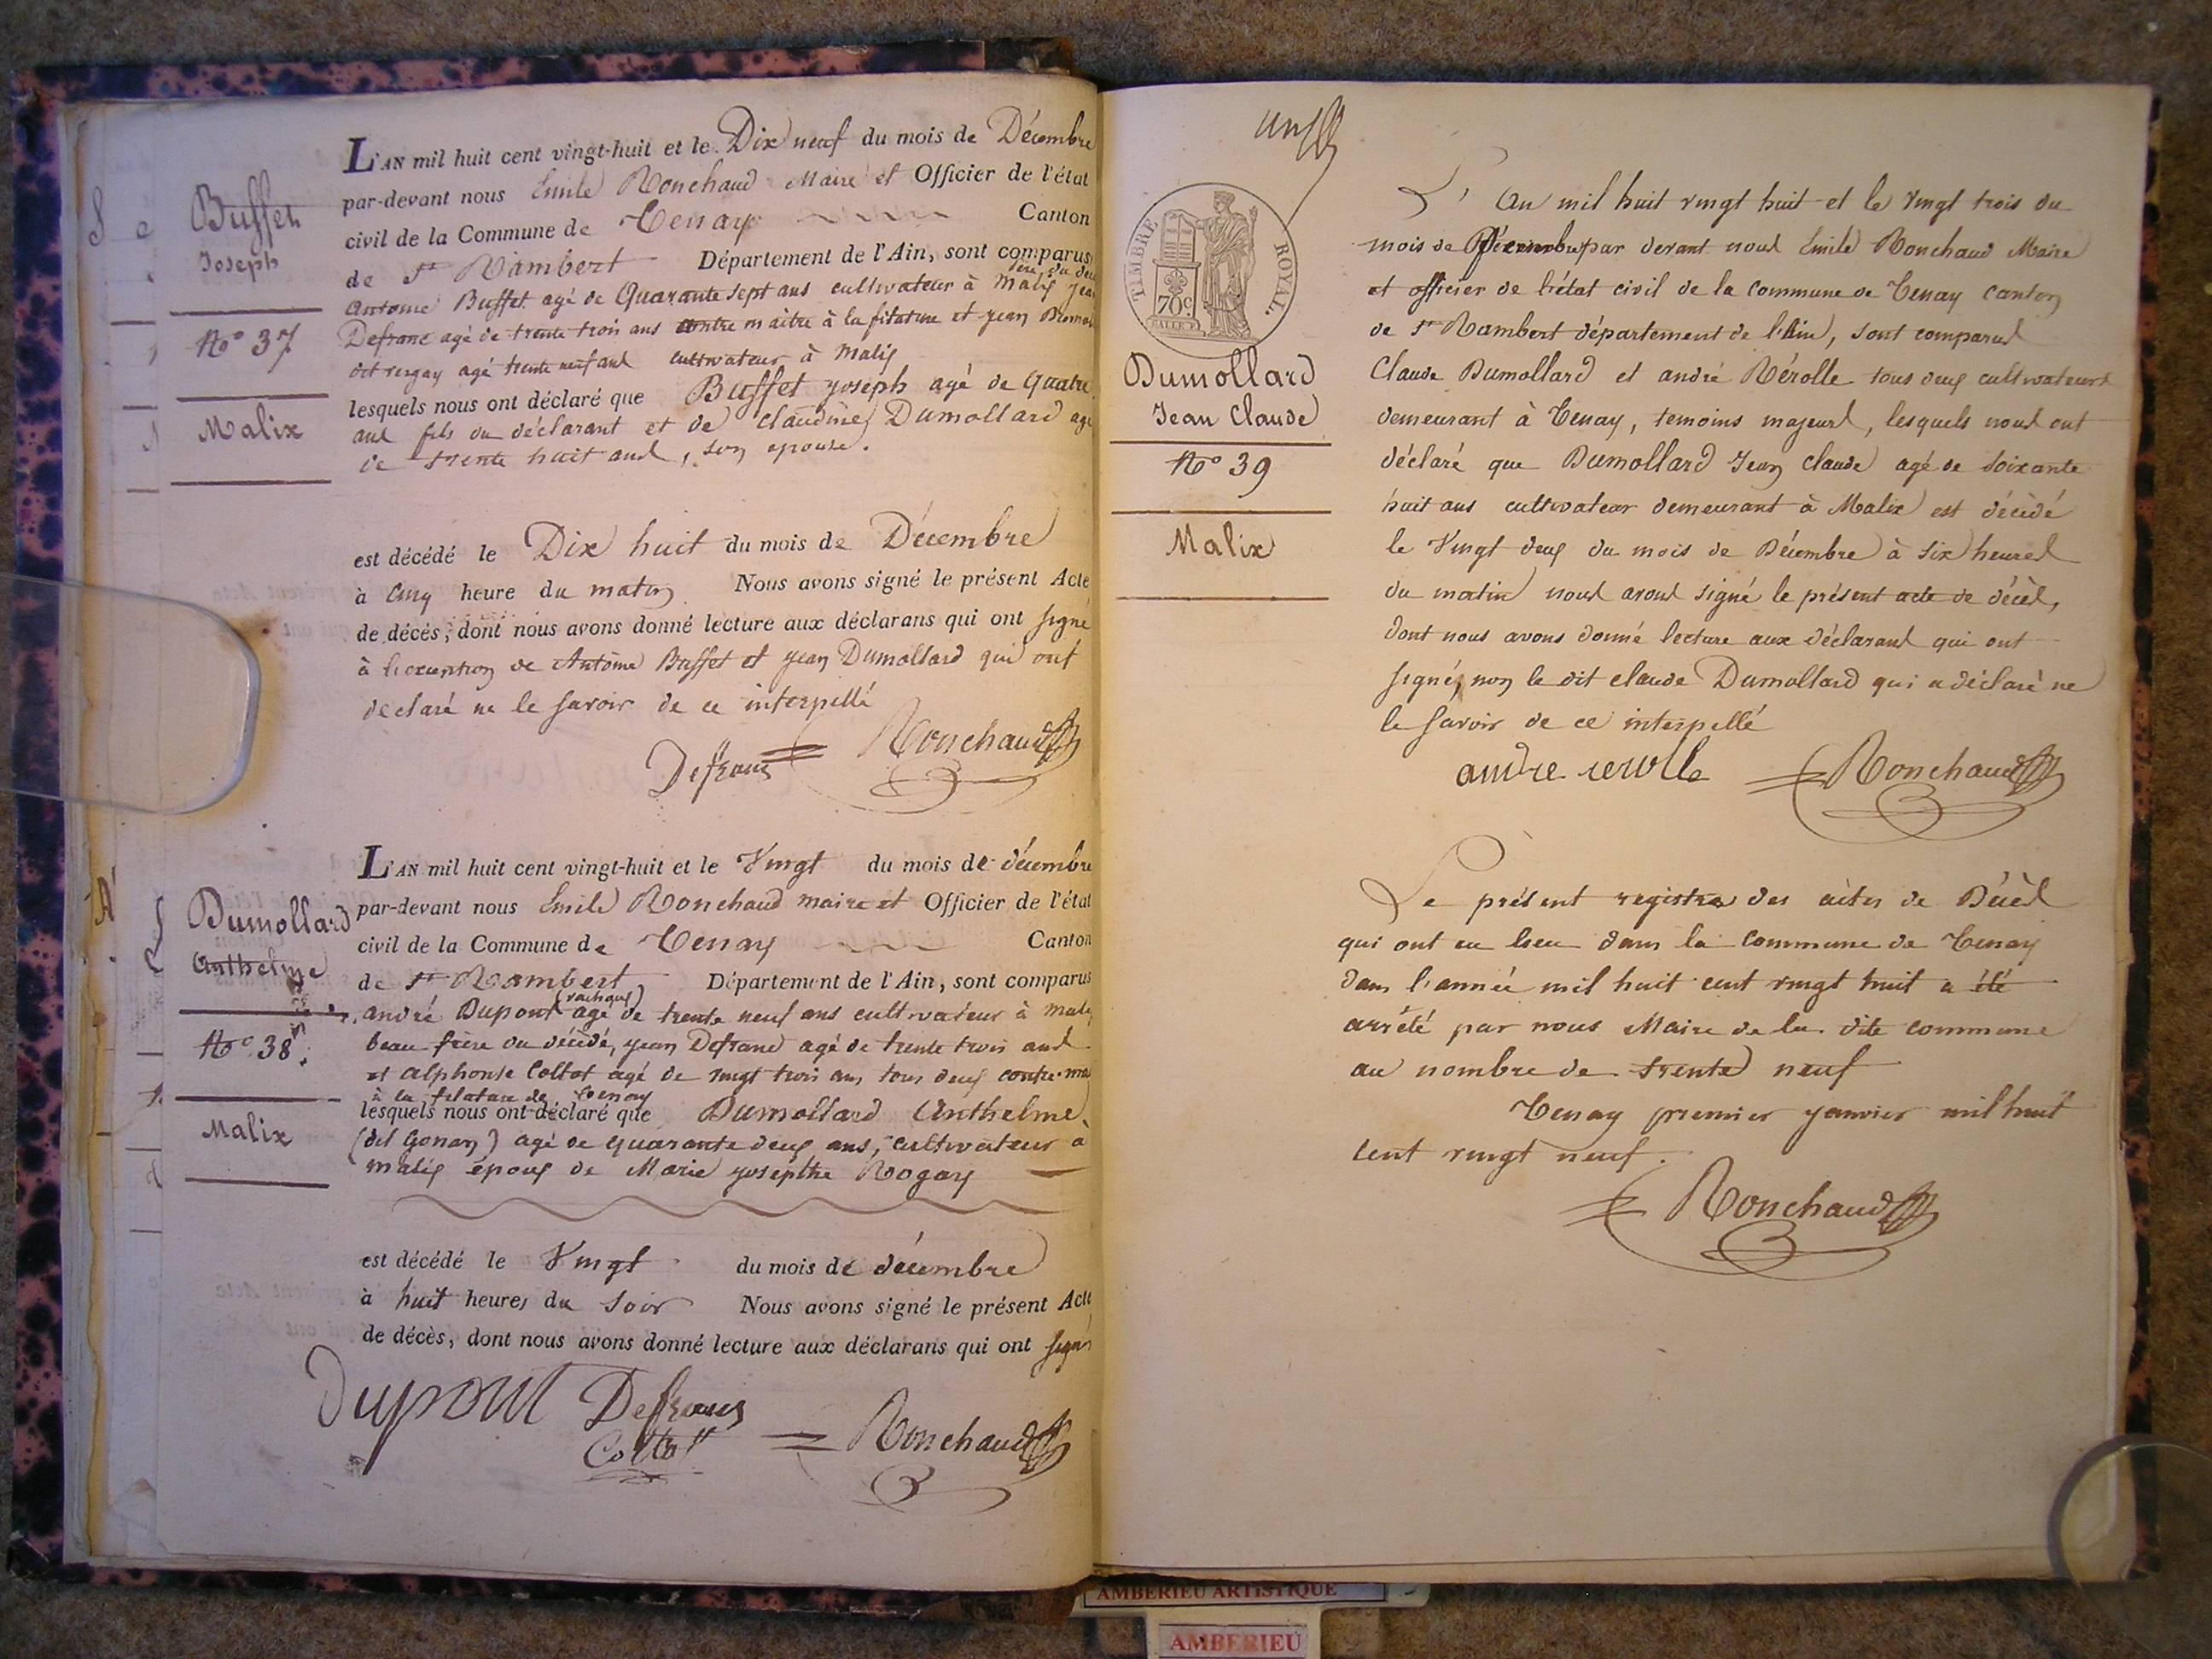 Buffet
Joseph
No 37
Malix
L'AN mil huit cent vingt-huit et le Dix neuf du mois de Décembre
par-devant nous Emile Ronchaud Maire et Officier de l'état
civil de la Commune de Tenay Canton
de St Rambert Département de l'Ain, sont comparus
père du
Antoine Buffet agé de Quarante sept ans cultivateur à Malix jean
Defranc agé de trente trois ans contre maitre à la filature et jean
dit agé trente neuf ans cultivateur à Malix
lesquels nous ont déclaré que Buffet joseph agé de quatre
ans fils du déclarant et de Claudine Dumollard agé
de trente huit ans, son epouse.
est décédé le Dix huit du mois de Décembre
à cinq heure du matin Nous avons signé le présent Acte
de décès, dont nous avons donné lecture aux déclarans qui ont signé
à l'exception de Antoine Buffet et jean Dumollard qui ont
declaré ne le savoir de ce interpellé
Defranc Ronchaud
Dumollard
Anthelme
No 38
Malix
L'AN mil huit cent vingt-huit et le Vingt du mois de décembre
par-devant nous Emile Ronchaud maire et Officier de l'état
civil de la Commune de Tenay Canton
de St Rambert Département de l'Ain, sont comparus
andré Dupont agé de trente neuf ans cultivateur à
beau frère du décédé, jean Defranc agé de trente trois ans
et alphonse Collot agé de vingt trois ans tous deux contre-
à la filature de Tenay
lesquels nous ont déclaré que Dumollard Anthelme
(dit Gonan) agé de quarante deux ans, cultivateur à
malix époux de Marie josephte Rogay
est décédé le Vingt du mois de décembre
à huit heures du soir Nous avons signé le présent Acte
de décès, dont nous avons donné lecture aux déclarans qui ont signé
Dupont Defranc
Collot Ronchaud
TIMBRE ROYAL.
70c.
Dumollard
Jean Claude
No 39
Malix
L'an mil huit vingt huit et le vingt trois du
mois de Décembre par devant nous Emile Ronchaud Maire
et officier de l'état civil de la commune de Tenay canton
de St Rambert département de l'Ain, sont comparus
Claude Dumollard et andré Rérolle tous deux cultivateurs
demeurant à Tenay, temoins majeurs, lesquels nous ont
déclaré que Dumollard Jean Claude agé de soixante
huit ans cultivateur demeurant à Malix est décédé
le Vingt deux du mois de Décembre à six heures
du matin nous avons signé le présent acte de décès,
dont nous avons donné lecture aux déclarans qui ont
signé, non le dit claude Dumollard qui a déclaré ne
le savoir de ce interpellé
andre rerolle Ronchaud
Le présent registre des actes de Décès
qui ont eu lieu dans la commune de Tenay
dans l'année mil huit cent vingt huit a été
arrété par nous Maire de la dite commune
au nombre de trente neuf
Tenay premier janvier mil huit
cent vingt neuf.
Ronchaud
AMBERIEU ARTISTIQUE
AMBERIEU